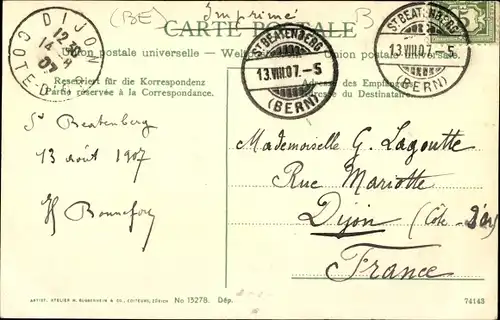 (BE)
Imprimé
B
CARTE POSTALE
Union postale universelle. — Weltpostverein. — Union postale universelle.
DIJON
12
14 - 8
07
COTE-D'OR
ST BEATENBERG
13.VIII.07.-5
(BERN)
ST BEATENBERG
13.VIII.07.-5
(BERN)
5
Reserviert für die Korrespondenz
Partie réservée à la Correspondance.
Adresse des Empfängers
Adresse du Destinataire.
St Beatenberg
13 août 1907
Mademoiselle G. Lagoutte
Rue Mariotte
Dijon (Côte-d'Or)
France
ARTIST. ATELIER H. GUGGENHEIM & CO., EDITEURS, ZÜRICH No 13278. Dép.
74143